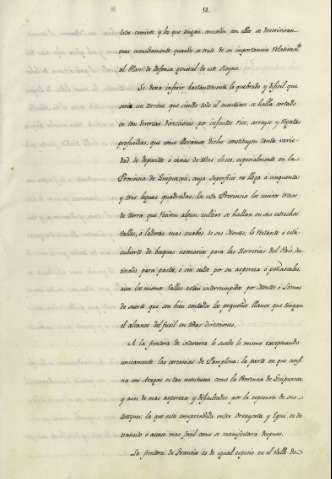 52.
este camino, y los que tengan conexión con ellos se describirán
mas menudamente quando se trate de su importancia relativa al
al Plan de defensa general de este Reyno.
Se deja inferir bastantemente lo quebrado y dificil que
será un terreno que siendo todo el montuoso se halla cortado
en tan diversas direcciones por infinitos rios, arroyos y
profundas, que unos llevaron dicho constituyen tanta varie-
dad de depositos ó venas de Mar, especialmente en la
Provincia de Guipuzcoa, cuya superficie no llega á cinquenta
y tres leguas quadradas: en esta Provincia los unicos trozos
de tierra que tienen algun cultivo se hallan en sus estrechos
Valles, ó laderas mas suaves de sus Montes, lo restante ó está
cubierto de bosques necesarios para las Herrerias del Pais,
para pasto, ó sin nada por su aspereza ó peñascales.
aún los mismos Valles están interrumpidos por Montes ó Lomas
de suerte que son bien contados los pequeños llanos que tengan
el alcance del fusil en todas direcciones.
A la frontera de Navarra le sucede lo mismo exceptuando
unicamente las cercanias de Pamplona: la parte en que confi-
na con Aragon es tan montuosa como la Provincia de Guipuzcoa
y aún de mas asperezas y dificultades por la espesura de sus
bosques; la que está comprendida entre
transito ó acceso mas facil como se manifestará despues.
La frontera de Francia es de igual especie en el Valle de